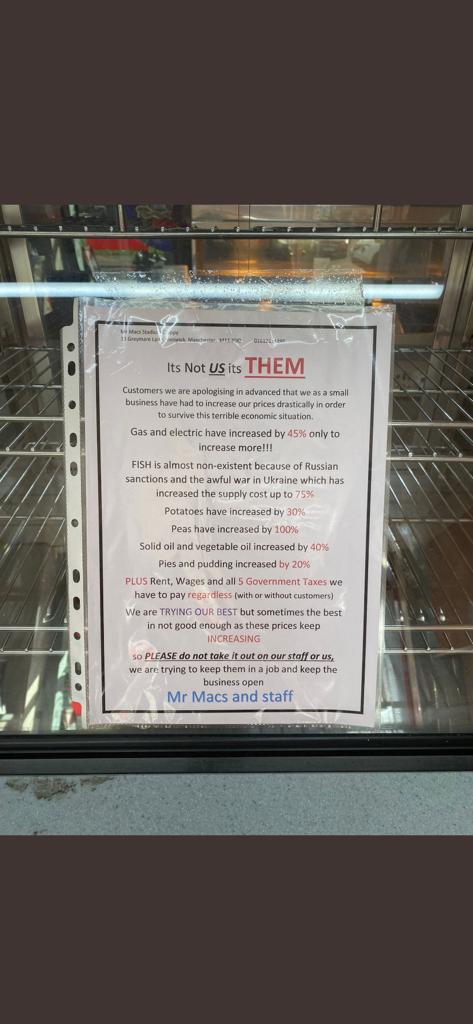 Mr Macs
Manchester,
Its Not US its THEM
Customers we are apologising in advanced that we as a small
business have had to increase our prices drastically in order
to survive this terrible economic situation.
Gas and electric have increased by 45% only to
increase more!!!
FISH is almost non-existent because of Russian
sanctions and the awful war in Ukraine which has
increased the supply cost up to 75%
Potatoes have increased by 30%
Peas have increased by 100%
Solid oil and vegetable oil increased by 40%
Pies and pudding increased by 20%
PLUS Rent, Wages and all 5 Government Taxes we
have to pay regardless (with or without customers)
We are TRYING OUR BEST but sometimes the best
in not good enough as these prices keep
INCREASING
so PLEASE do not take it out on our staff or us,
we are trying to keep them in a job and keep the
business open
Mr Macs and staff